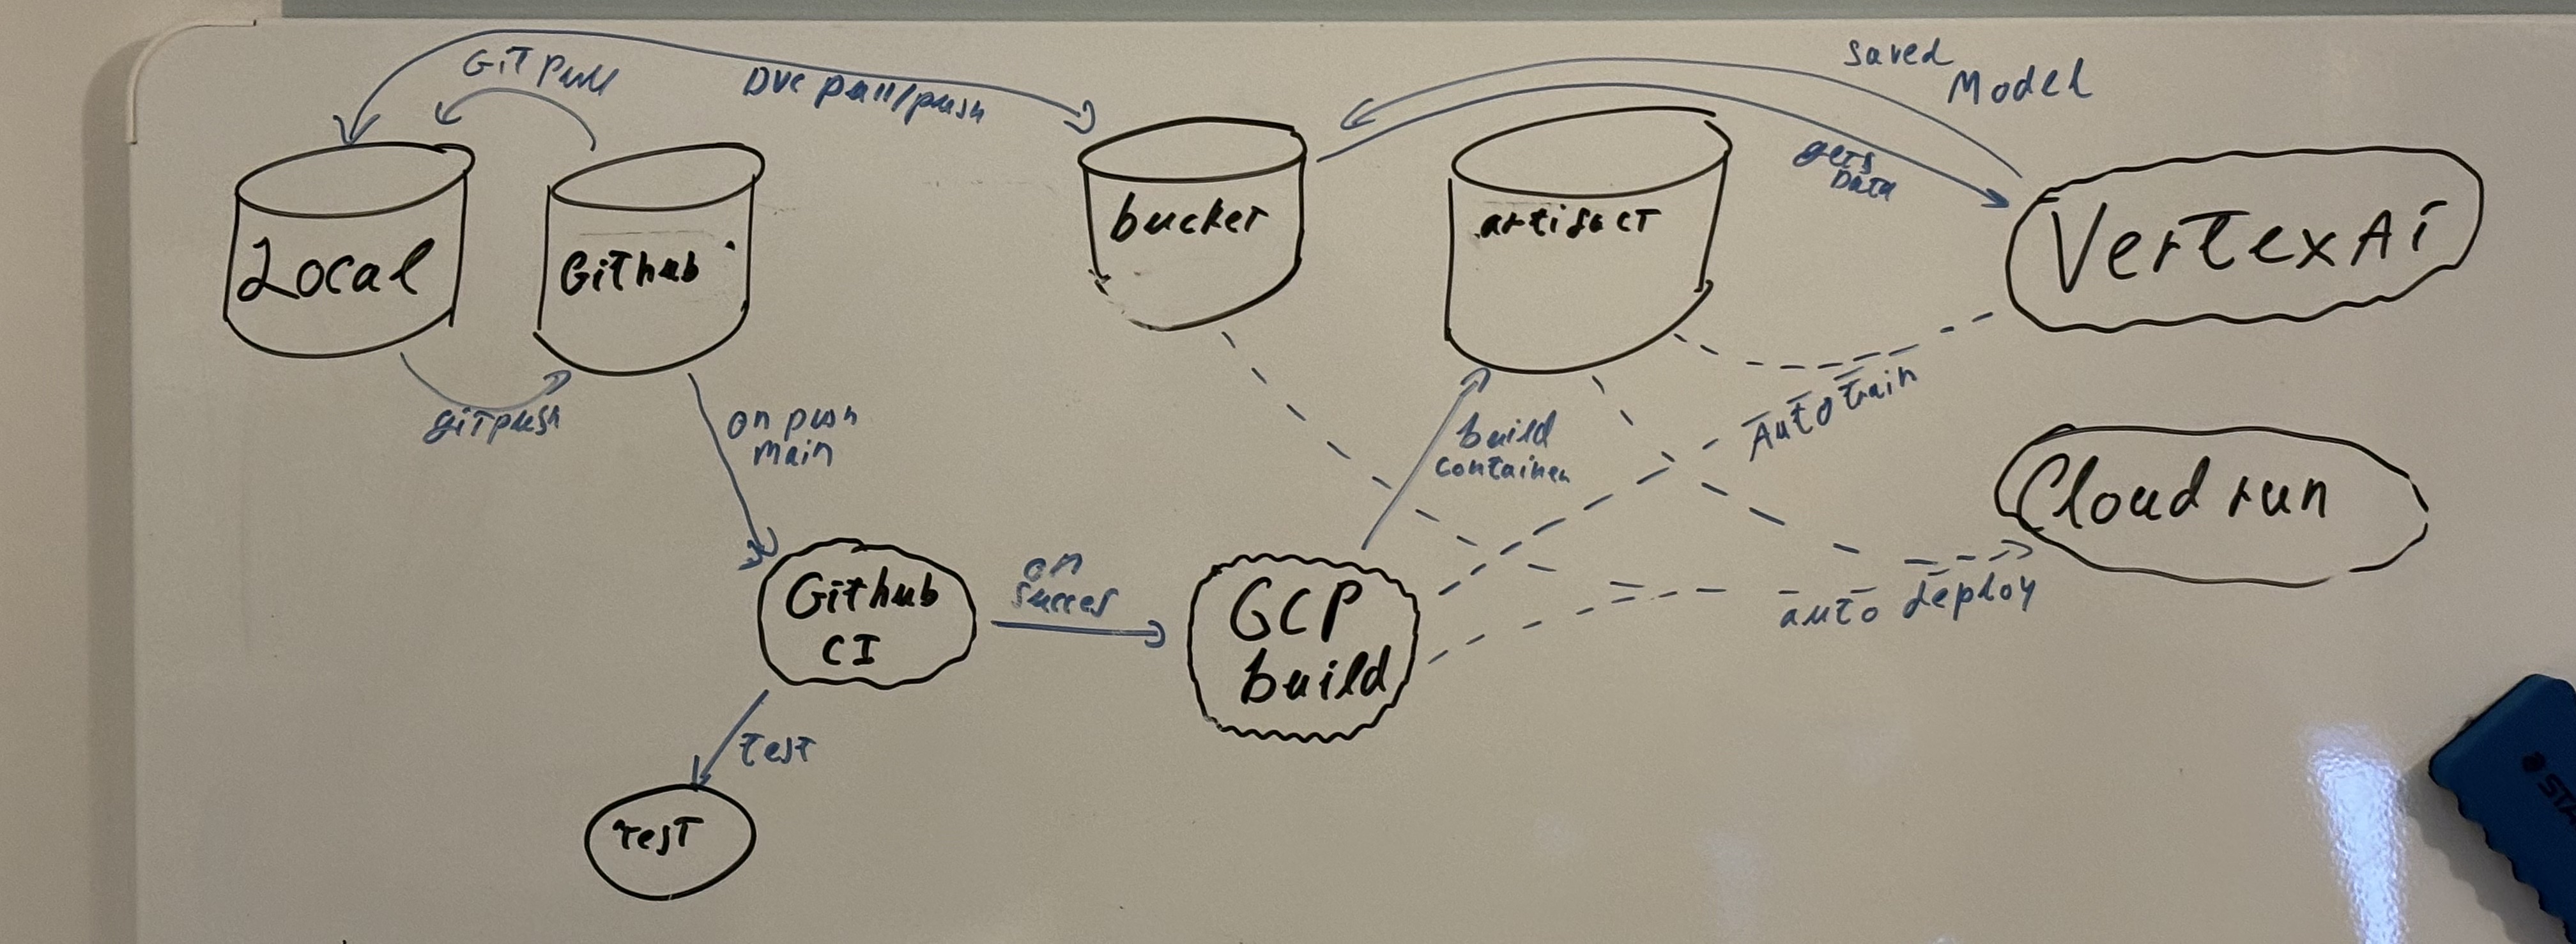 GiT Pull
DVC pull/push
saved
Model
gets
Data
Local
GiThub
bucket
artifact
VertexAi
giTpush
on push
main
build
container
Auto train
Cloud run
Github
CI
on
succes
GCP
build
auto deploy
Test
Test
STA